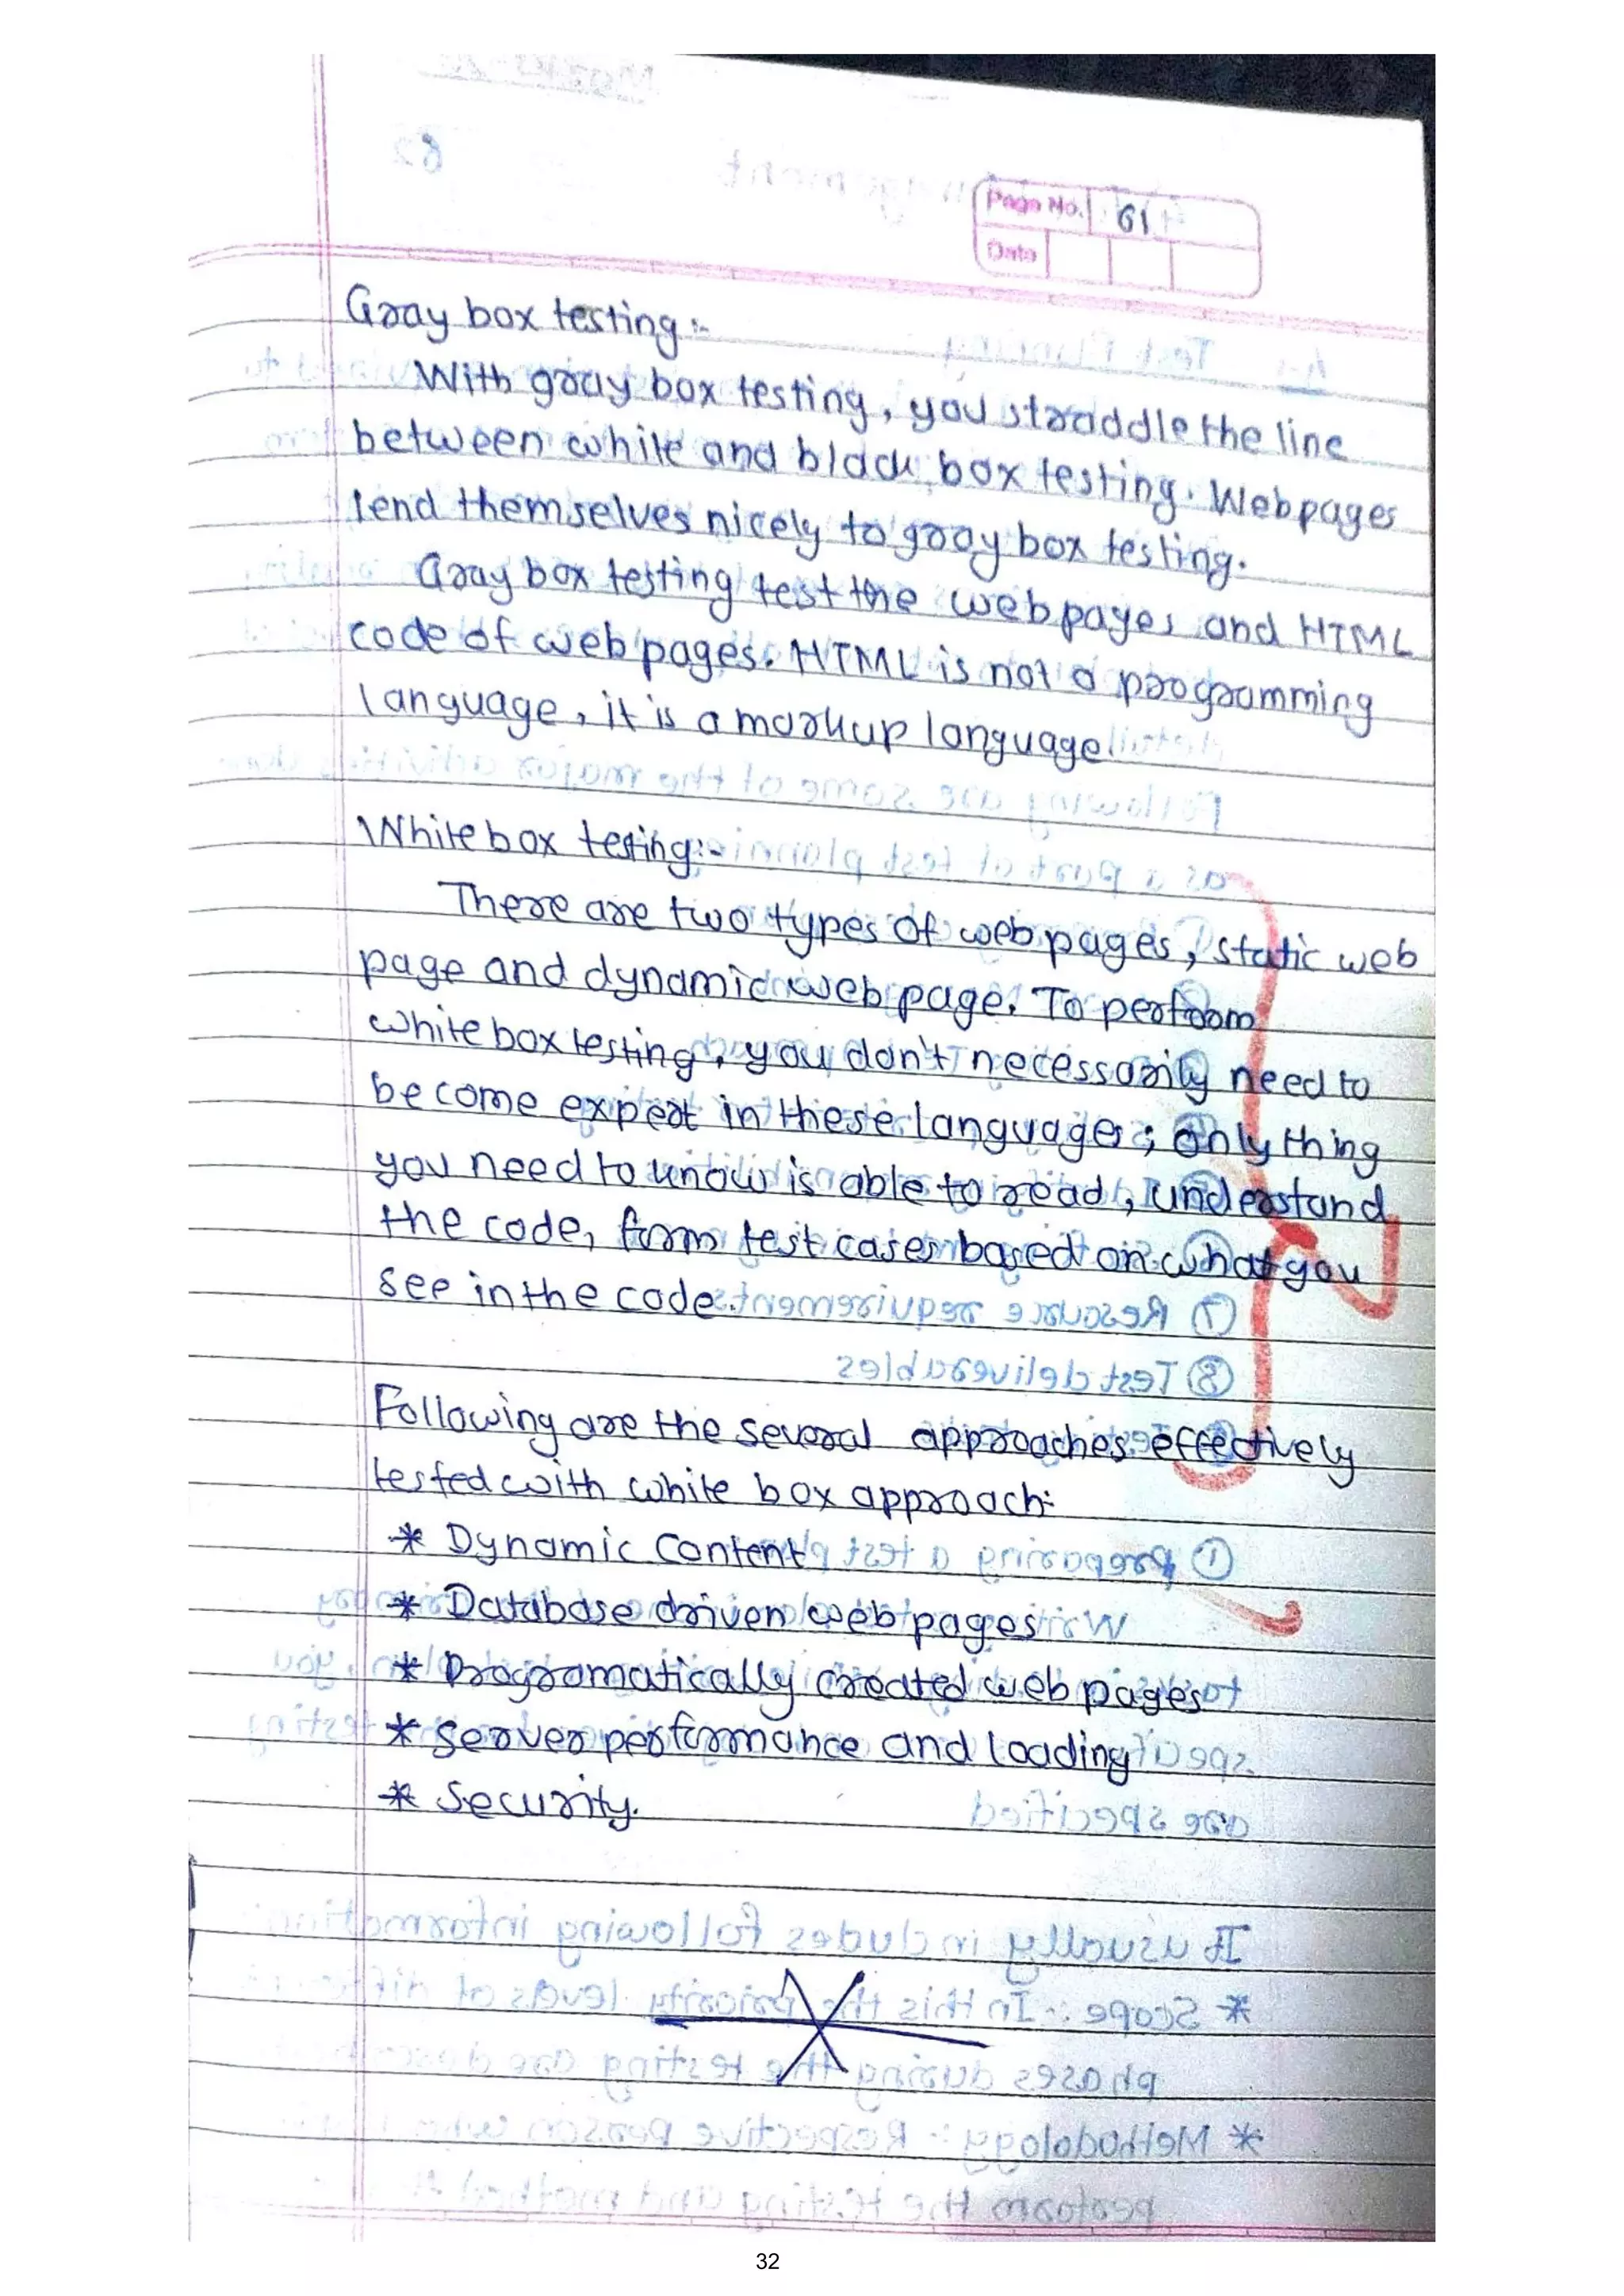 Page No. 61
Date
Gray box testing :-
With gray box testing, you straddle the line
between white and black box testing. Webpages
lend themselves nicely to gray box testing.
Gray box testing test the webpages and HTML
code of web pages. HTML is not a programming
language, it is a markup language
White box testing:-
There are two types of web pages, static web
page and dynamic web page. To perform
white box testing, you don't necessarily need to
become expert in these languages; only thing
you need to know is able to read, understand
the code, form test cases based on what you
see in the code.
Following are the several approaches effectively
tested with white box approach:
* Dynamic Content
* Database driven web pages
* Programatically created web pages
* Server performance and loading
* Security.
32